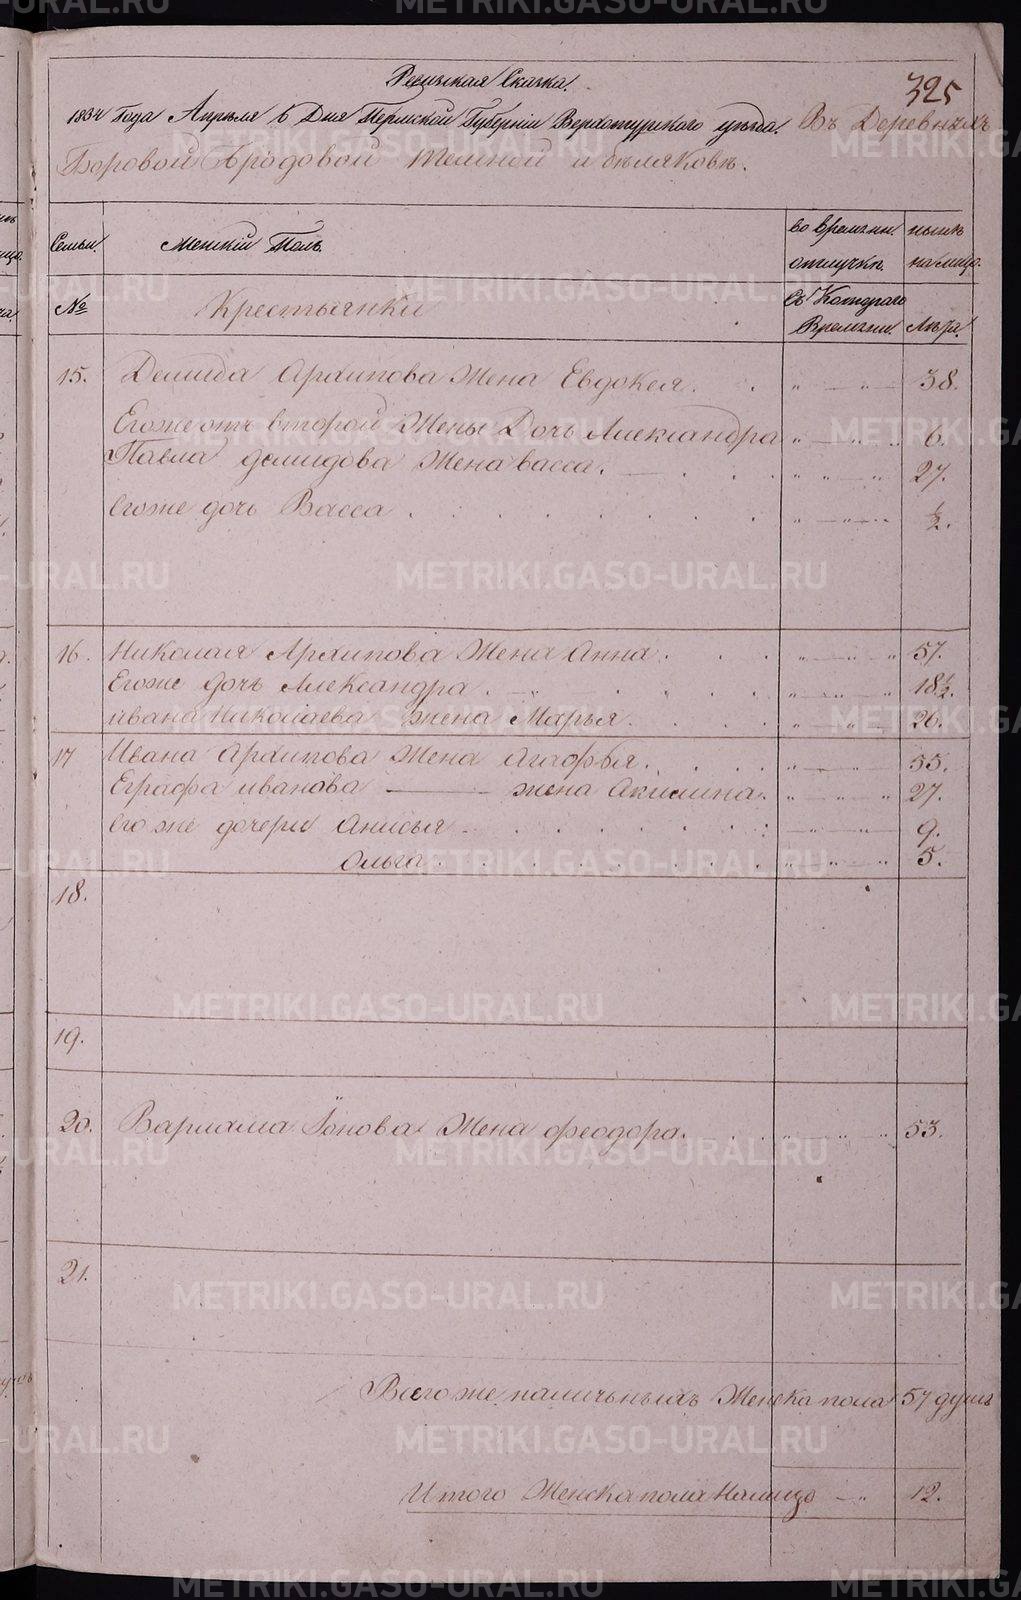 325
Ревизская Сказка.
1834 Года Апреля 6 Дня Пермской Губерніи Верхотурскаго уѣзда. Въ Деревняхъ
Боровой Бродовой Темной и бѣляковѣ.
Семьи. Женскій Полъ. во времянн. нынѣ
отлучкѣ. на лицо.
№ Крестьянки Съ Котораго
Времяни. Лѣта.
15. Демида Архипова Жена Евдокея. 38.
Егоже отъ второй Жены Дочь Александра " — " 6.
Павла демидова Жена васса. — 27.
Егоже дочь Васса 1/2.
16. Николая Архипова Жена Анна. 57.
Егоже дочь Александра. 18 1/2.
ивана Николаева жена Марья. 26.
17 Ивана Архипова Жена Агафья. 55.
Еграфа иванова — жена Акилина. 27.
Егоже дочери Анисья 9.
Ольга 5.
18.
19.
20. Варлама Іонова Жена феодора. 53.
21.
Всего же наличныхъ Женска пола 57 душъ
Итого Женска пола Налицо — " 12.
METRIKI.GASO-URAL.RU